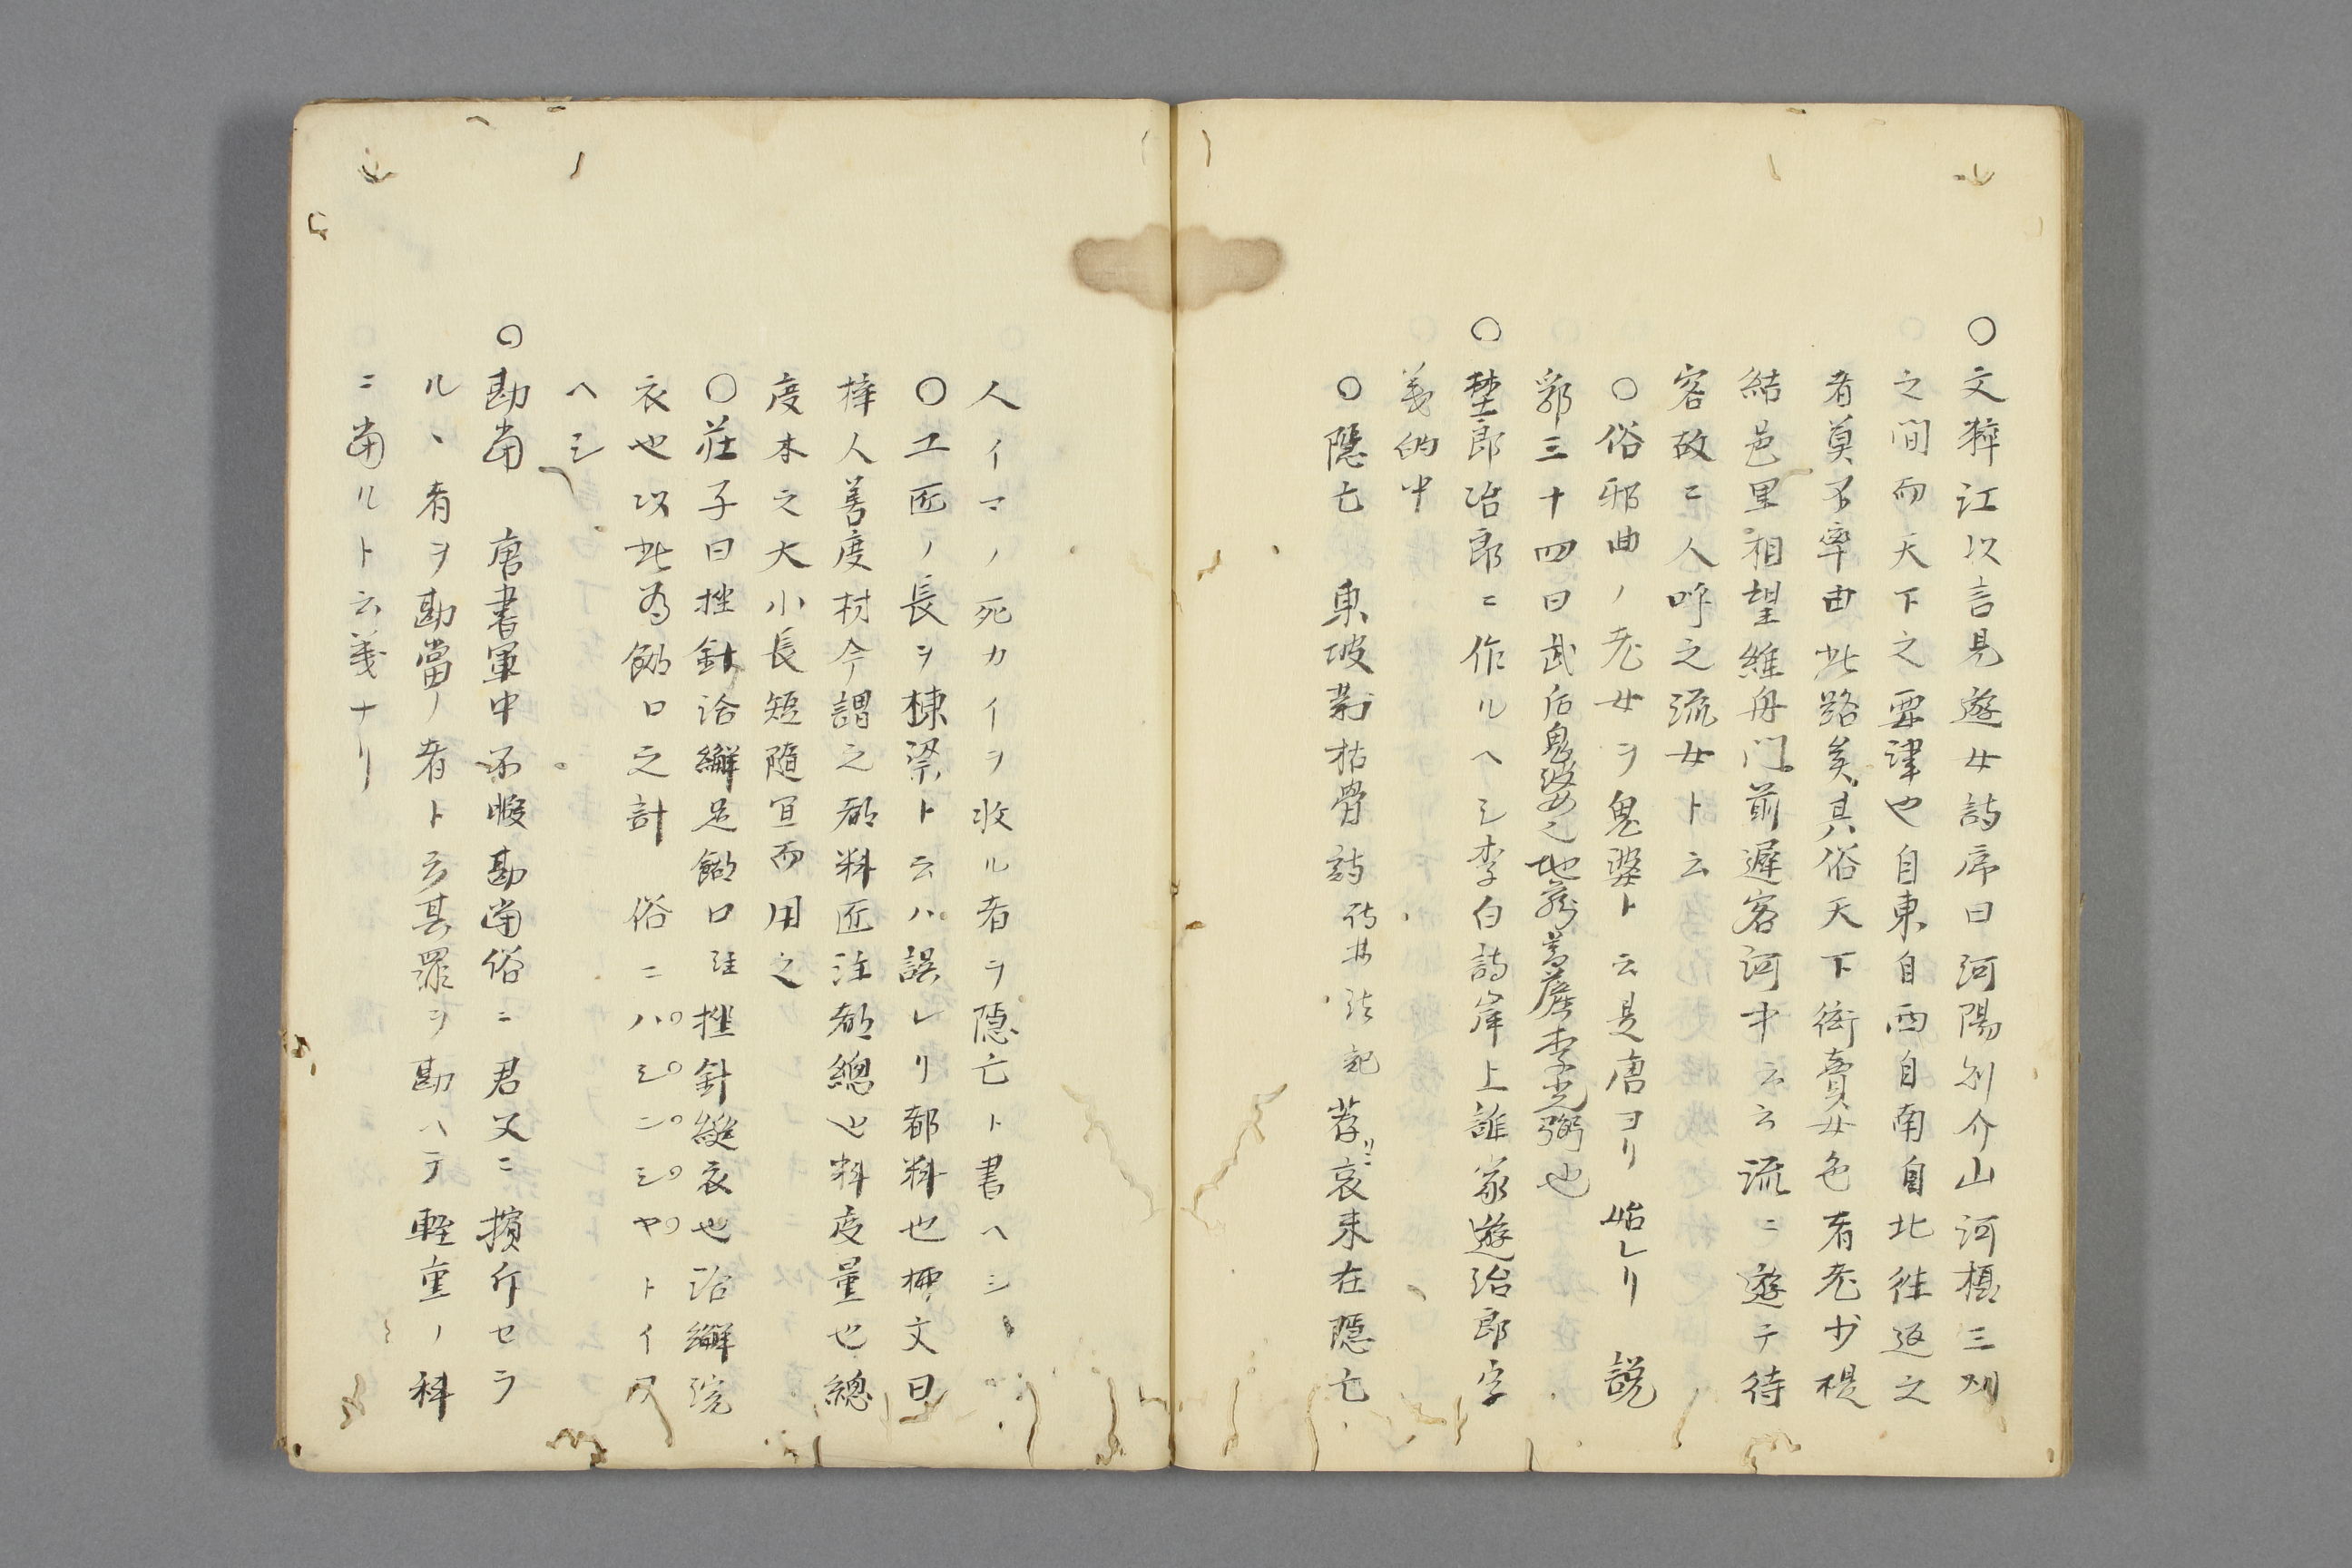 〇文粹江以言見遊女詩序曰河陽則介山河攝三州
之間而天下之要津也自東自西自南自北往返之
者莫不率由此路矣其俗天下衒賣女色者老少提
結邑里相望維舟門前遲客河中云云流ニ遊テ待
客故ニ人呼之流女ト云
〇俗邪曲ノ老女ヲ鬼婆ト云是唐ヨリ始レリ 説
郛三十四曰武后鬼婆之地藏菩薩李光弼也
〇埜郎冶郎ニ作ルヘシ李白詩岸上誰家遊冶郎字
義的中
〇隱亡 東坡葬枯骨詩 荐哀耒在隱亡
人イマノ死カイヲ收ル者ヲ隱亡ト書ヘシ
〇工匠ノ長ヲ棟梁ト云ハ誤レリ都料也柳文曰
梓人善度材今謂之都料匠注都總也料度量也總
度木之大小長短隨宜而用之
〇莊子曰挫針治繲足餬口注挫針縫衣也治繲浣
衣也以此為餬口之計 俗ニハシンシヤトイフ
ヘシ
〇勘當 唐書軍中不暇勘當俗ニ君父ニ擯斥セラ
ルヽ者ヲ勘當ノ者ト云其罪ヲ勘ヘテ輕重ノ科
ニ當ルト云義ナリ